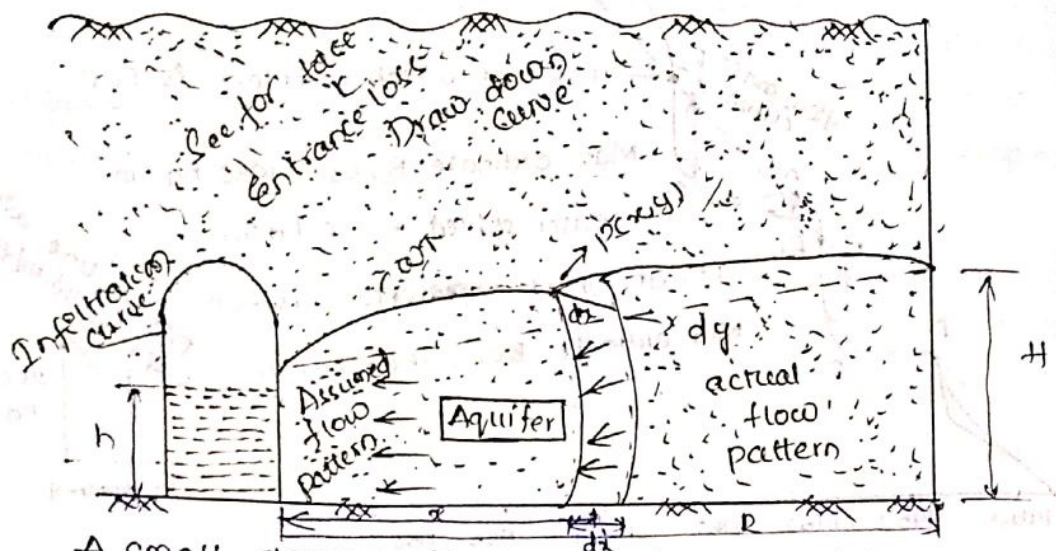 See for face
&
Entrance loss
Draw down
curve
Infiltration
curve
WT
P(x,y)
dx
dy
H
h
Assumed
flow
pattern
Aquifer
actual
flow
pattern
x
dx
R
A small